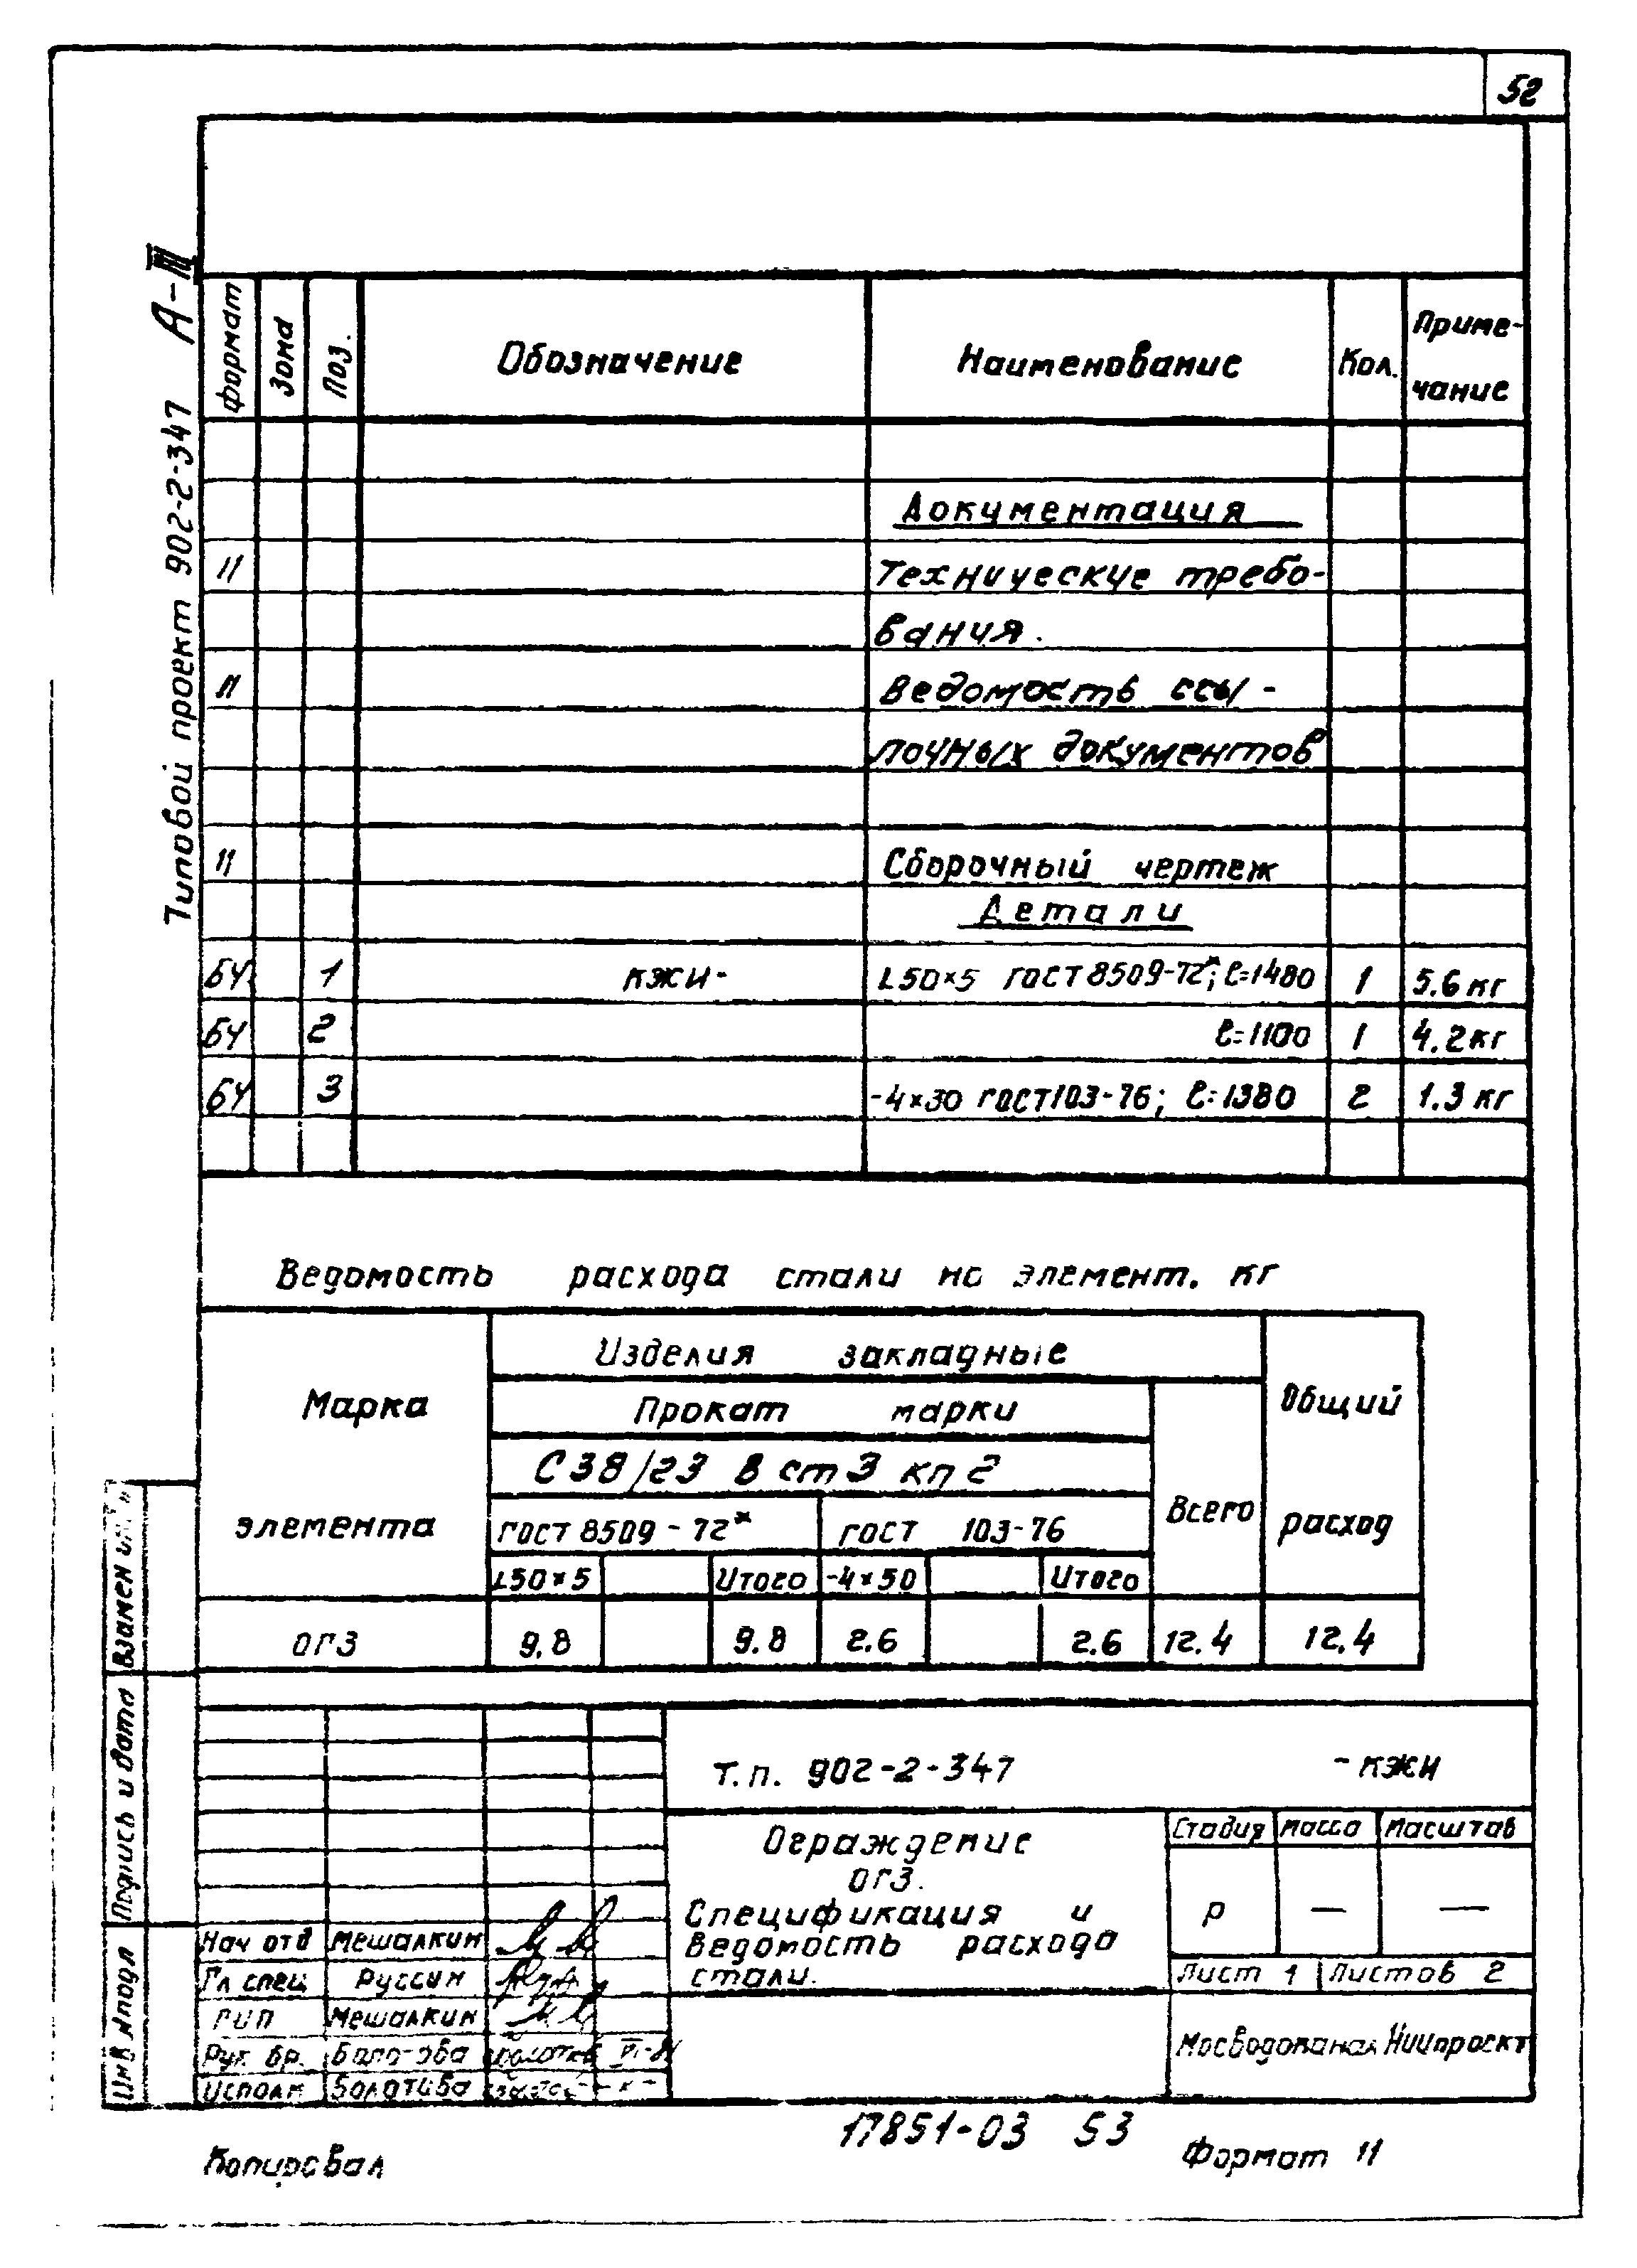 52
Типовой проект 902-2-347 А-III
Формат Зона Поз. Обозначение Наименование Кол. Приме-
чание
Документация
11 Технические требо-
вания.
11 Ведомость ссы-
лочных документов
11 Сборочный чертеж
Детали
БЧ 1 КЖИ- L50×5 ГОСТ 8509-72*; ℓ=1480 1 5.6 кг
БЧ 2 ℓ=1100 1 4.2 кг
БЧ 3 -4×30 ГОСТ 103-76; ℓ=1380 2 1.3 кг
Ведомость расхода стали на элемент. кг
Марка
элемента
Изделия закладные
Общий
расход
Прокат марки
Всего
С 38/23 В ст 3 кп 2
ГОСТ 8509-72* ГОСТ 103-76
L50×5 Итого -4×50 Итого
ОГ3 9.8 9.8 2.6 2.6 12.4 12.4
Т.п. 902-2-347 -КЖИ
Ограждение
ОГ3.
Спецификация и
ведомость расхода
стали.
Стадия Масса Масштаб
Р — —
Лист 1 Листов 2
Мосводоканал Ниипроект
Нач отд Мешалкин
Гл спец Руссин
ГИП Мешалкин
Рук. бр.
Исполн
Взамен инв.
Подпись и дата
Инв № подл
17851-03 53
Копировал
Формат 11